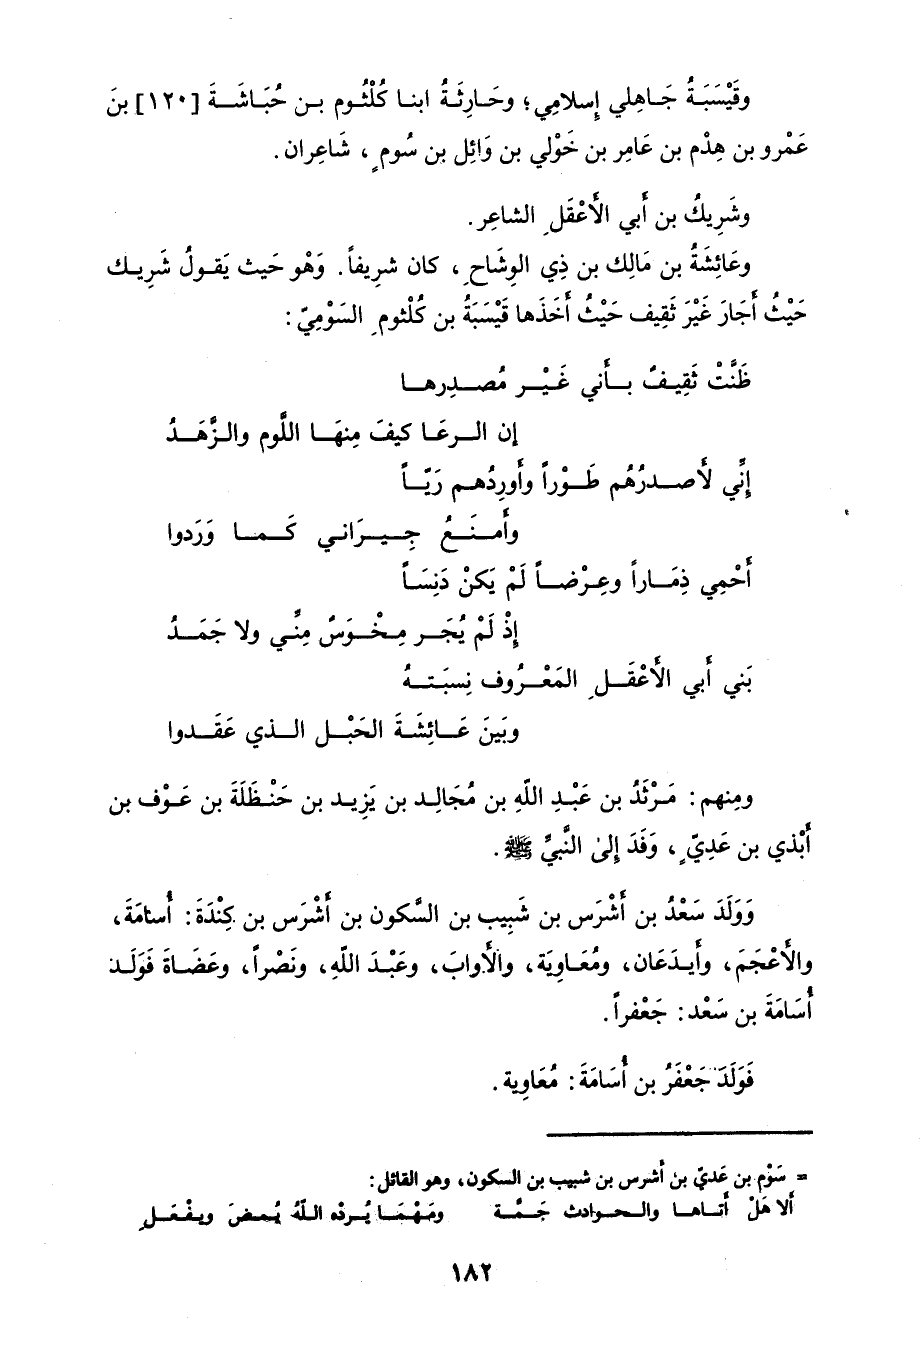 وقَيْسَبَةُ جَاهلي إسلامِي؛ وحَارِثَةُ ابنا كُلْثُوم بن حُبَاشَة [١٢٠] بنَ
عَمْرو بن هِدْم بن عَامِر بن خَوْلي بن وَائِل بن سُومٍ، شَاعِران.
وشَرِيكُ بن أَبي الأَعْقَلِ الشاعِر.
وعَائِشَةُ بن مَالِك بن ذِي الوِشَاحِ، كان شرِيفاً. وَهْو حَيث يَقولُ شَرِيك
حَيْثُ أَجَارَ عَيْرَ ثَقِيف حَيْثُ أَخَذَها قَيْسَبَةُ بن كُلْثومِ السَوْمِيّ:
ظَنَّتْ ثَقِيفٌ بأَني غَيْر مُصدِرها
إن الرعَا كيفَ مِنهَا اللَّوم والزَّهَدُ
إِنِّي لأَصدرُهُم طَوْراً وأَورِدُهم رَيّاً
وأَمنَعُ جِيرَاني كَما وَرَدوا
أَحْمِي ذِمَاراً وعِرْضاً لَمْ يَكنْ دَنِسَاً
إذْ لَمْ يُجَر مِخْوَسٌ مِنِّي ولا جَمَدُ
بَني أَبي الأَعْقَلِ المَعْرُوف نِسبَتهُ
وبَينَ عَائِشَةَ الحَبْل الذي عَقَدوا
ومِنهم: مَرْثَدُ بن عَبْدِ اللّهِ بن مُجَالِد بن يَزِيد بن حَنْظَلَةَ بن عَوْف بن
أَبْذي بن عَدِيّ، وَفَدَ إلىٰ النَّبيِّ ﷺ.
وَوَلَدَ سَعْدُ بن أَشْرَس بن شَبِيب بن السَّكون بن أَشْرَس بن كِنْدَةَ: أُسامَةَ،
والأَعْجَمَ، وأَيدَعَان، ومُعَاوِيَة، والأَوابَ، وعَبْدَ اللّهِ، ونَصْراً، وعَضَاةَ فَوَلَدَ
أُسَامَةَ بن سَعْد: جَعْفراً.
فَوَلَدَ جَعْفَرُ بن أُسَامَةَ: مُعَاوِية.
= سَوْم بن عَديّ بن أشرس بن شبيب بن السكون، وهو القائل:
أَلا هَلْ أَتاها والحوادث جَمَّة ومَهْمَا يُرِدْه اللّهُ يُمضَ ويفْعَلِ
١٨٢